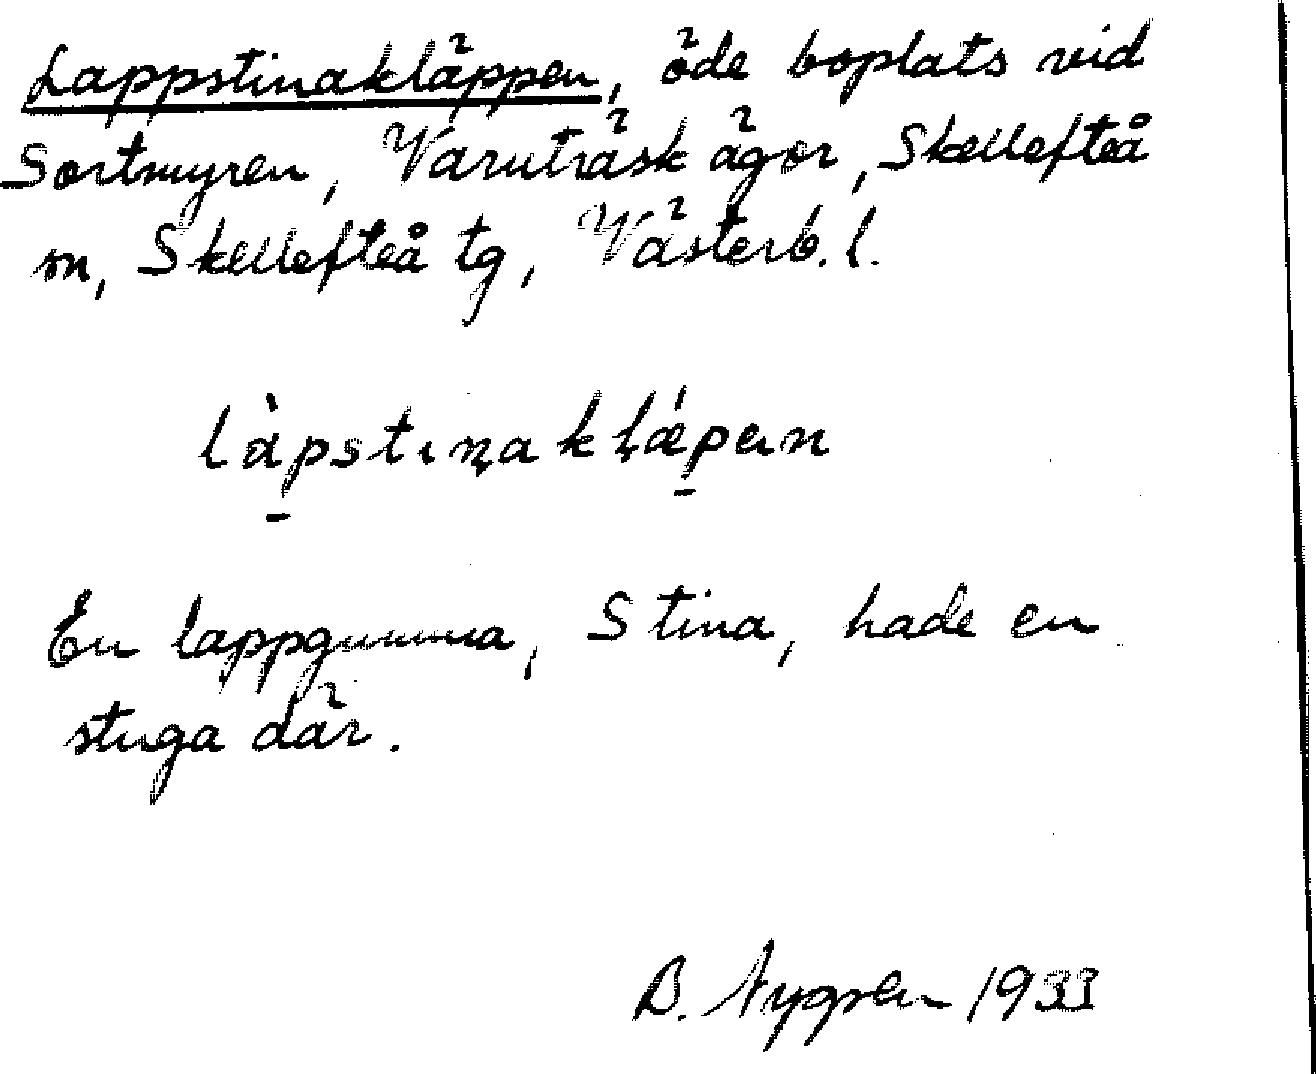 Lappstinakläppen, öde boplats vid
Sortmyren, Varuträsk ägor, Skellefteå
sn, Skellefteå tg, Västerb. l.
làpstinaklǽpen
En lappgumma, Stina, hade en
stuga där.
B. Nygren 1933